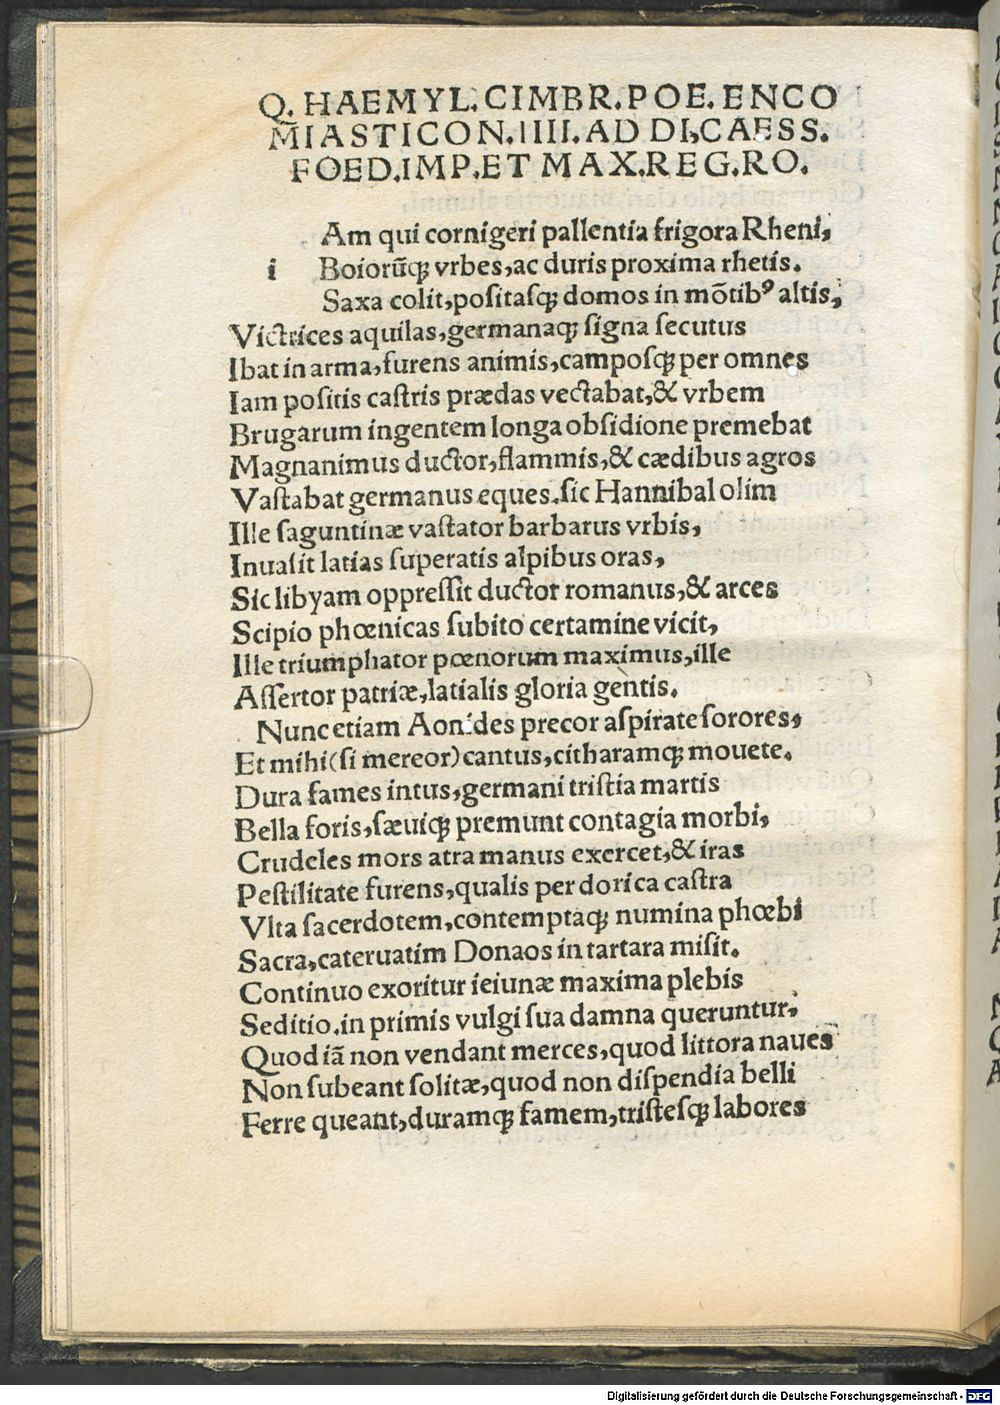 Q. HAEMYL. CIMBR. POE. ENCO
MIASTICON. IIII. AD DI, CAESS.
FOED. IMP. ET MAX. REG. RO.
Am qui cornigeri pallentia frigora Rheni,
i Boiorūꝗ vrbes, ac duris proxima rhetis.
Saxa colit, poſitaſꝗ domos in mōtibꝰ altis,
Victrices aquilas, germanaꝗ ſigna ſecutus
Ibat in arma, furens animis, campoſꝗ per omnes
Iam poſitis caſtris prædas vectabat, & vrbem
Brugarum ingentem longa obſidione premebat
Magnanimus ductor, flammis, & cædibus agros
Vaſtabat germanus eques. ſic Hannibal olim
Ille ſaguntinæ vaſtator barbarus vrbis,
Inuaſit latias ſuperatis alpibus oras,
Sic libyam oppreſſit ductor romanus, & arces
Scipio phœnicas ſubito certamine vicit,
Ille triumphator pœnorum maximus, ille
Aſſertor patriæ, latialis gloria gentis.
Nunc etiam Aonides precor aſpirate ſorores,
Et mihi (ſi mereor) cantus, citharamꝗ mouete.
Dura fames intus, germani triſtia martis
Bella foris, ſæuiꝗ premunt contagia morbi,
Crudeles mors atra manus exercet, & iras
Peſtilitate furens, qualis per dorica caſtra
Vlta ſacerdotem, contemptaꝗ numina phœbi
Sacra, cateruatim Donaos in tartara miſit.
Continuo exoritur ieiunæ maxima plebis
Seditio. in primis vulgi ſua damna queruntur,
Quod iā non vendant merces, quod littora naues
Non ſubeant ſolitæ, quod non diſpendia belli
Ferre queant, duramꝗ famem, triſteſꝗ labores
Digitalisierung gefördert durch die Deutsche Forschungsgemeinschaft - DFG